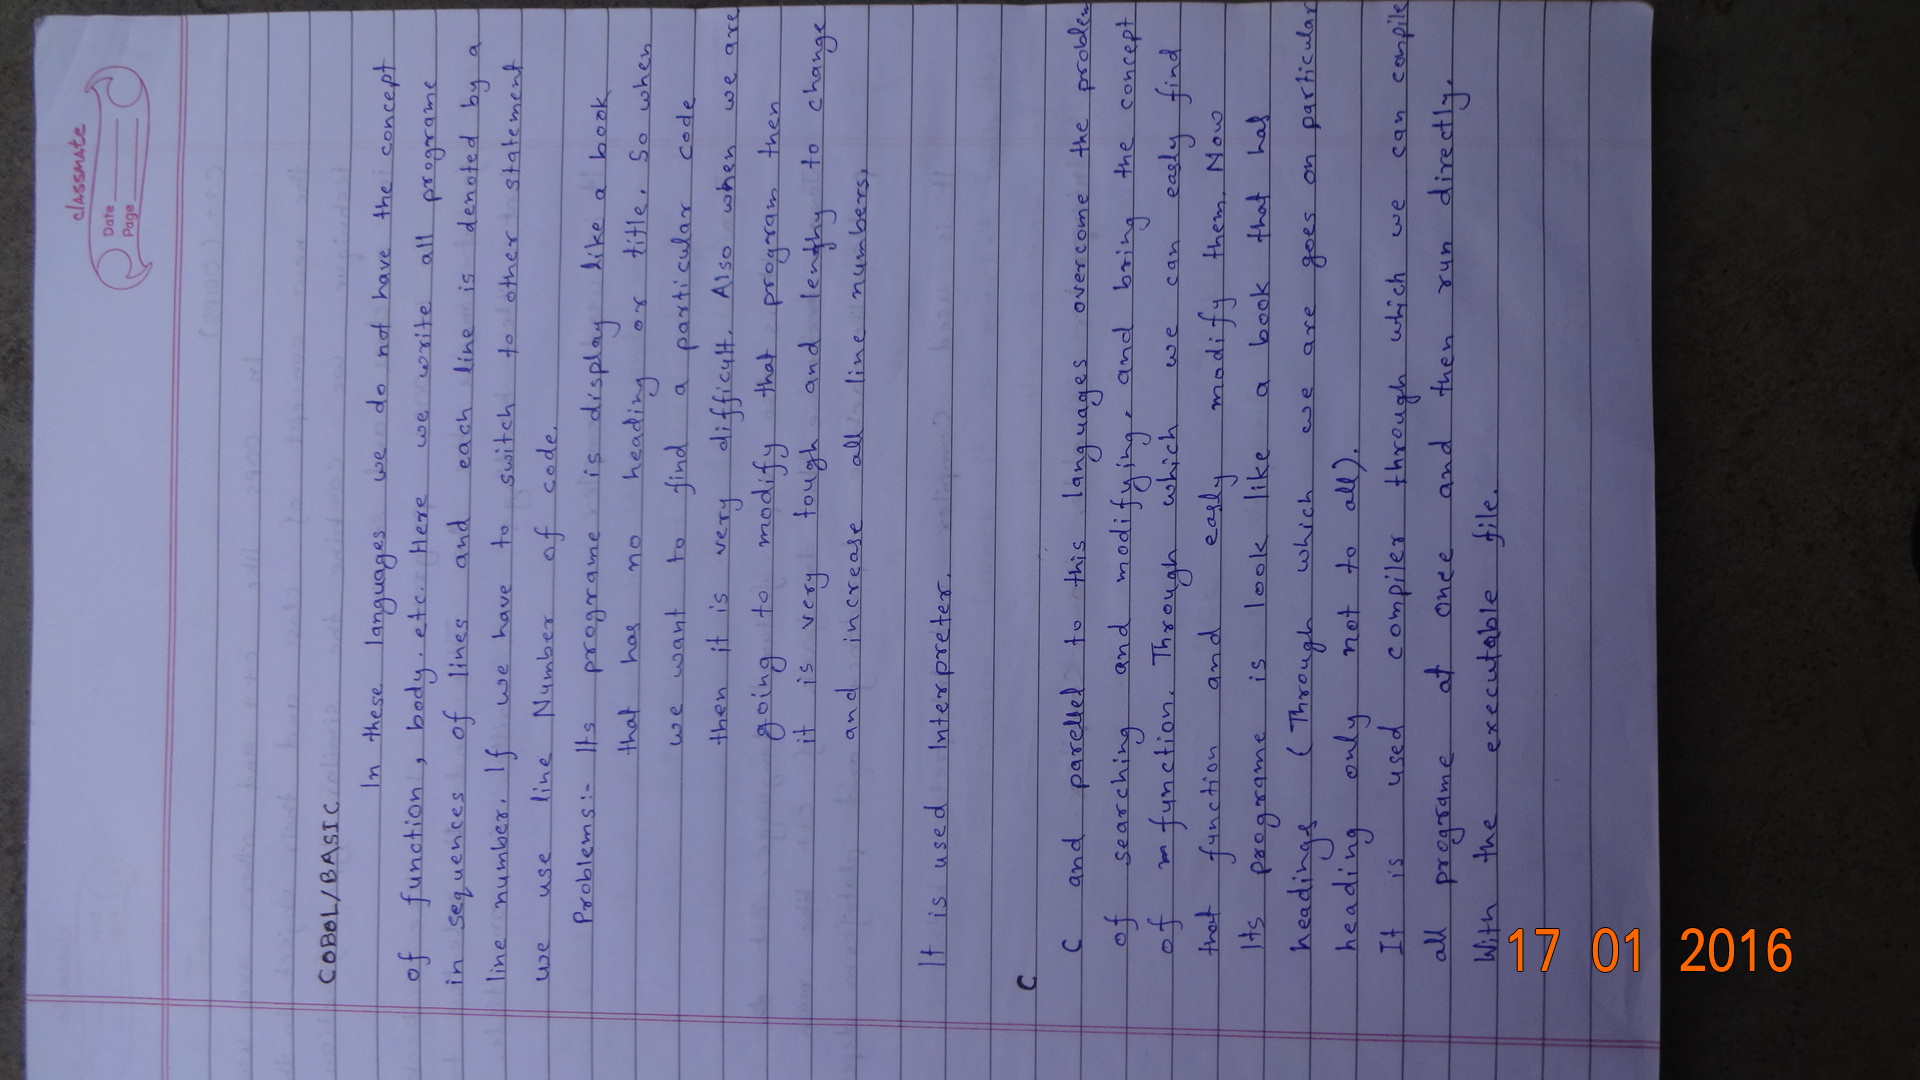 classmate
Date
Page
COBOL/BASIC
In these languages we do not have the concept
of function, body. etc. Here we write all programe
in sequences of lines and each line is denoted by a
line number. If we have to switch to other statement
we use line Number of code.
Problems:- Its programe is display like a book
that has no heading or title. So when
we want to find a particular code
then it is very difficult. Also when we are
going to modify that program then
it is very tough and lenghy to change
and increase all line numbers.
It is used Interpreter.
C
C and parellel to this languages overcome the problem
of searching and modifying. and bring the concept
of function. Through which we can easly find
that function and easly modify them. Now
Its programe is look like a book that has
headings (Through which we are goes on particular
heading only not to all).
It is used compiler through which we can compile
all programe at once and then run directly.
With the executable file.
17 01 2016